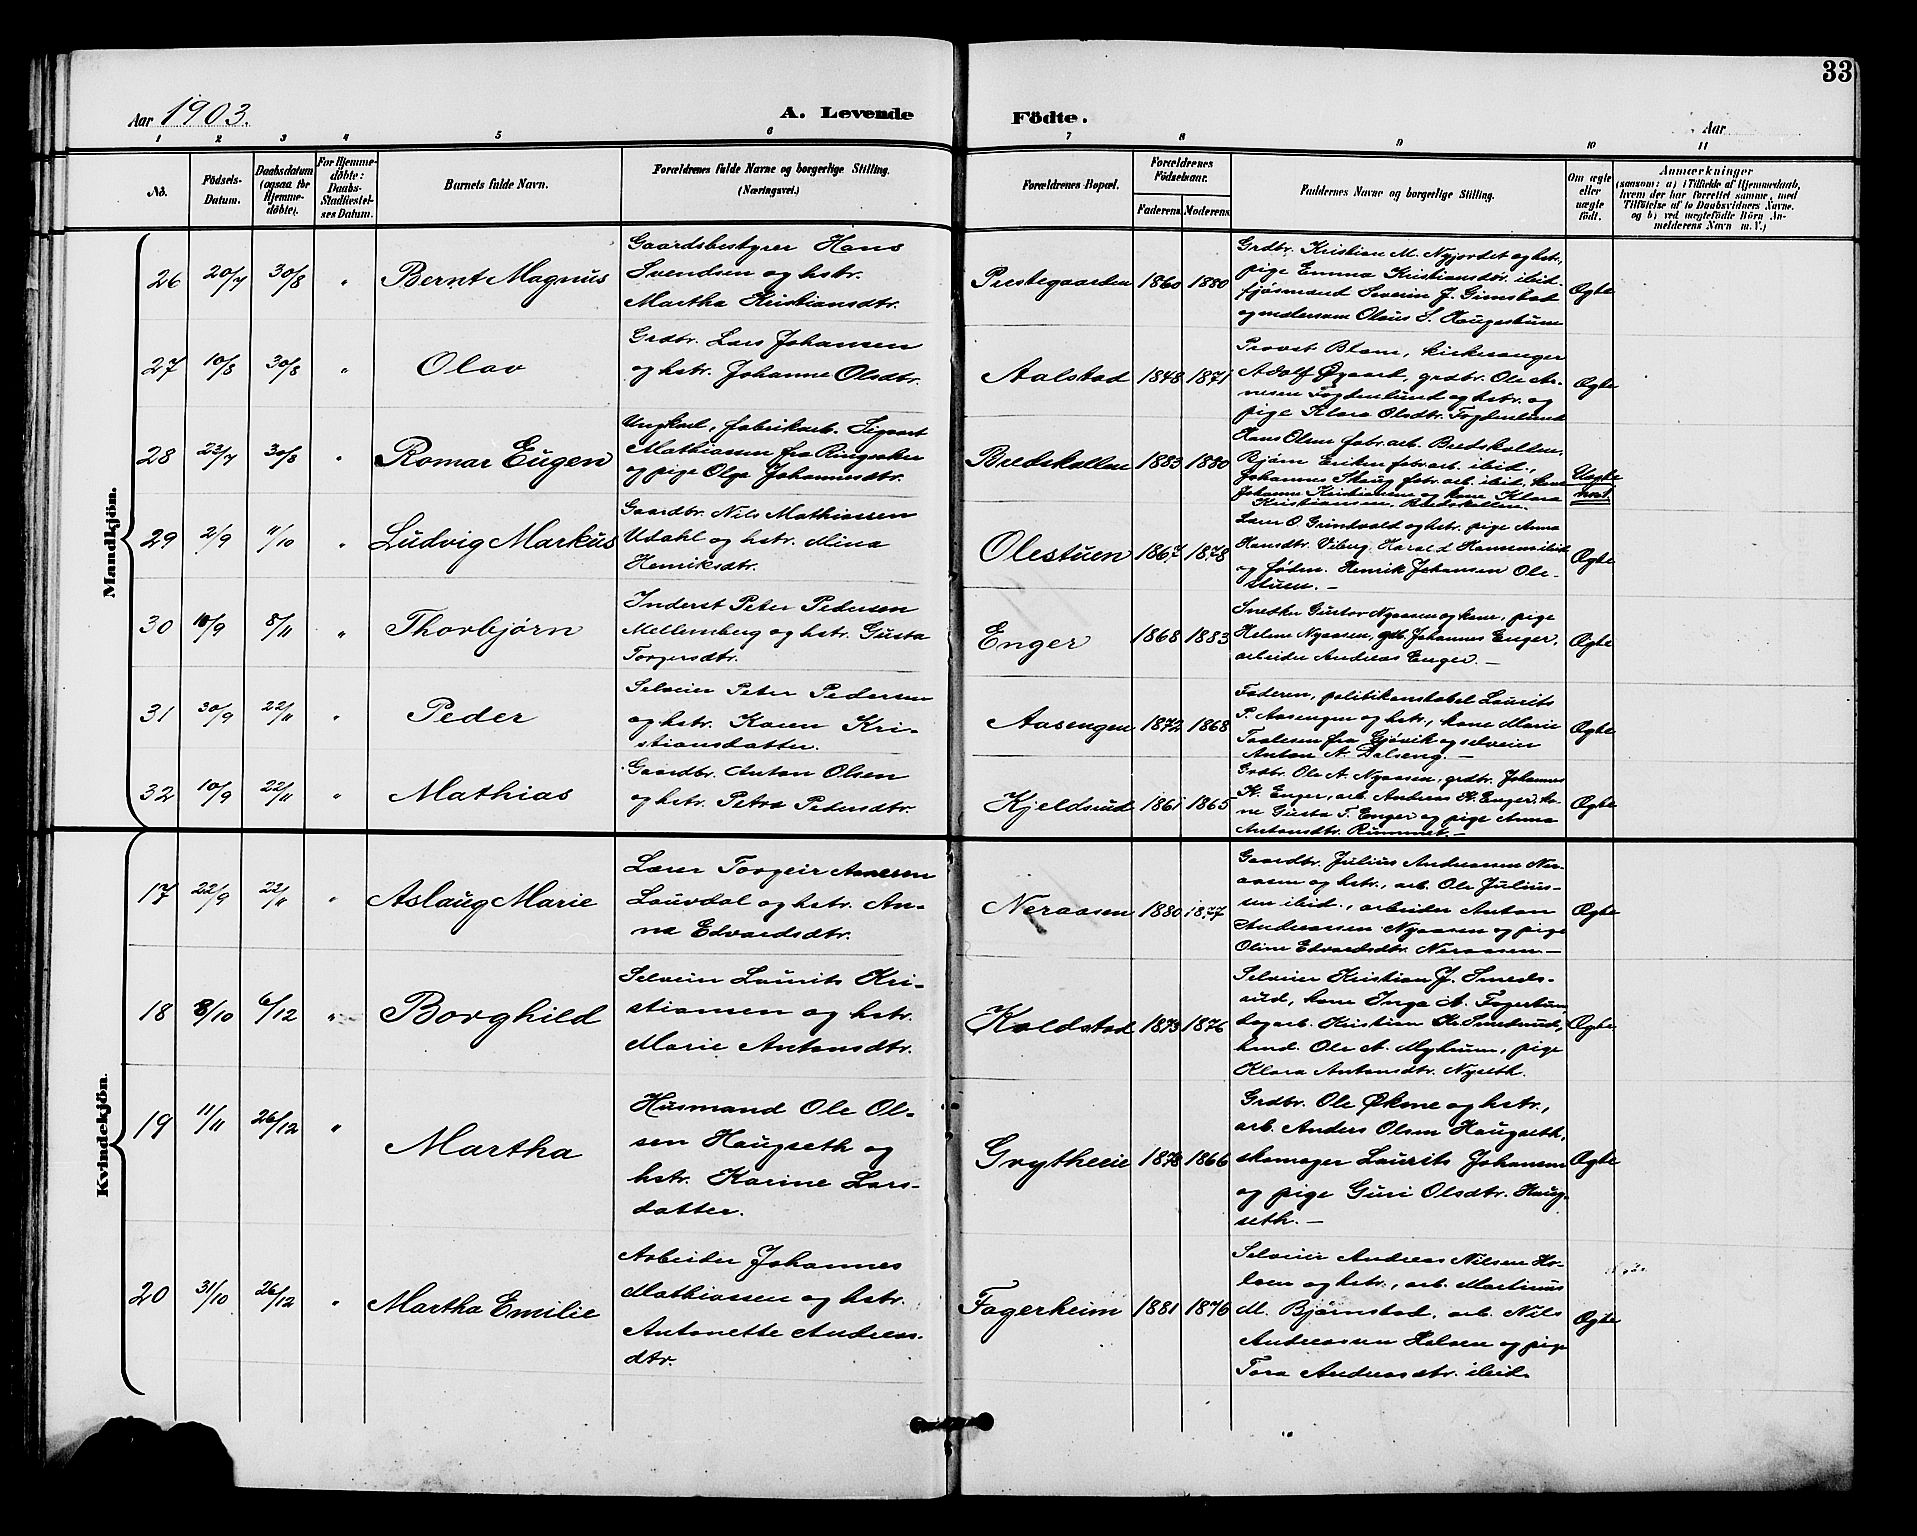 33
Aar 1903.
A. Levende
Födte.
Aar
1 2 3 4 5 6 7 8 9 10 11
No.
Födsels-Datum.
Daabsdatum (ogsaa for Hjemme-döbte).
For Hjemme-döbte: Daabs-Stadfæstel-ses Datum.
Barnets fulde Navn.
Forældrenes fulde Navne og borgerlige Stilling. (Næringsvei.)
Forældrenes Bopæl.
Forældrenes Födselsaar.
Faderens Moderens
Faddernes Navne og borgerlige Stilling.
Om ægte eller uægte født.
Anmærkninger
(saasom: a) i Tilfælde af Hjemmedaab, hvem der har forrettet samme, med Tilføielse af to Daabsvidners Navne, og b) ved uægtefödte Börn An-melderens Navn m. V.)
Mandkjön.
26 20/7 30/8 " Bernt Magnus
Gaardsbestyrer Hans
Svendsen og hstr.
Martha Kristiansdtr.
Prestegaarden 1860 1880
Grdbr. Kristian M. Nyjordet og hstr.,
pige Emma Kristiansdtr. ibid.
fjøsmand Severin J. Gimstad
og Olaus S. Haugestuen
Ægte
27 10/8 30/8 " Olav
Grdbr. Lars Johansen
og hstr. Johanne Olsdtr.
Aalstad 1848 1871
Provst Blom, kirkesanger
Adolf Øgaard, grdbr. Ole Ar-
nesen Fogdenlund og hstr. og
pige Klara Olsdtr. Fogdenlund
Ægte
28 23/7 30/8 " Romar Eugen
Ungkarl, fabrikarb. Sigvart
Mathiassen fra Ringsaker
og pige Olga Johannesdtr.
Bredskallen 1883 1880
Hans Olsen fabr.arb. Bredskallen,
Bjørn Eriksen fabr.arb. ibid.,
Johannes Skaug fabr.arb. ibid., kone
Johanne Kristiansen og kone Klara
Kristiansen, Bredskallen.
Uægte
29 2/9 11/10 " Ludvig Markus
Gaardbr. Nils Mathiassen
Udahl og hstr. Mina
Henriksdtr.
Olestuen 1867 1878
Lars O. Grindvold og hstr. pige Anna
Hansdtr. Viberg, Harald Hansen ibid
og faderen. Henrik Johansen Ole-
stuen. –
Ægte
30 10/9 8/11 " Thorbjørn
Inderst Peter Pedersen
Mellemberg og hstr. Gusta
Torgersdtr.
Enger 1868 1883
Snedker Gustav Nyaasen og kone, pige
Helene Nyaasen, gdb. Johannes Enger,
arbeider Andreas Enger. –
Ægte
31 30/9 22/11 " Peder
Selveier Peter Pedersen
og hstr. Karen Kri-
stiansdatter.
Aasengen 1872 1868
Faderen, politikonstabel Laurits
P. Aasengen og hstr., kone Marie
Paalesen fra Gjøvik og selveier
Anton A. Dalseng. –
Ægte
32 10/9 22/11 " Mathias
Gaardbr. Anton Olsen
og hstr. Petra Pedersdtr.
Kjeldsrud 1861 1865
Grdbr. Ole A. Nyaasen, grdbr. Johannes
K. Enger, arb. Andreas K. Enger, ko-
ne Gusta T. Enger og pige Anna
Antonsdtr. Rummet. –
Ægte
Kvindekjön.
17 22/9 22/11 " Aslaug Marie
Lærer Torgeir Arnesen
Lauvdal og hstr. An-
na Edvardsdtr.
Neraasen 1880 1877
Gaardbr. Julius Andreassen Ner-
aasen og hstr., arb. Ole Julius-
sen ibid., arbeider Anton
Andreassen Nyaasen og pige
Oline Edvardsdtr. Neraasen –
Ægte
18 8/10 6/12 " Borghild
Selveier Laurits Kri-
stiansen og hstr.
Marie Antonsdtr.
Koldstad 1873 1876
Selveier Kristian J. Smeds-
rud, kone Inga A. Fagertun,
Kristian Kr. Smedsrud,
Ole A. Myhrum, pige
Klara Antonsdtr. Nyseth.
Ægte
19 11/11 26/12 " Martha
Husmand Ole Ol-
sen Haugseth og
hstr. Karine Lars-
datter.
Grytheeie 1878 1866
Grdbr. Ole Økne og hstr.,
arb. Anders Olsen Haugseth,
skomager Laurits Johansen
og pige Guri Olsdtr. Haug-
seth. –
Ægte
20 31/10 26/12 " Martha Emilie
Arbeider Johannes
Mathiassen og hstr.
Antonette Andreas-
dtr.
Fagerheim 1881 1876
Selveier Andreas Nilsen Ho-
lven og hstr., arb. Martinus
M. Bjørnstad, arb. Nils
Andreassen Holven og pige
Tora Andreasdtr. ibid.
Ægte